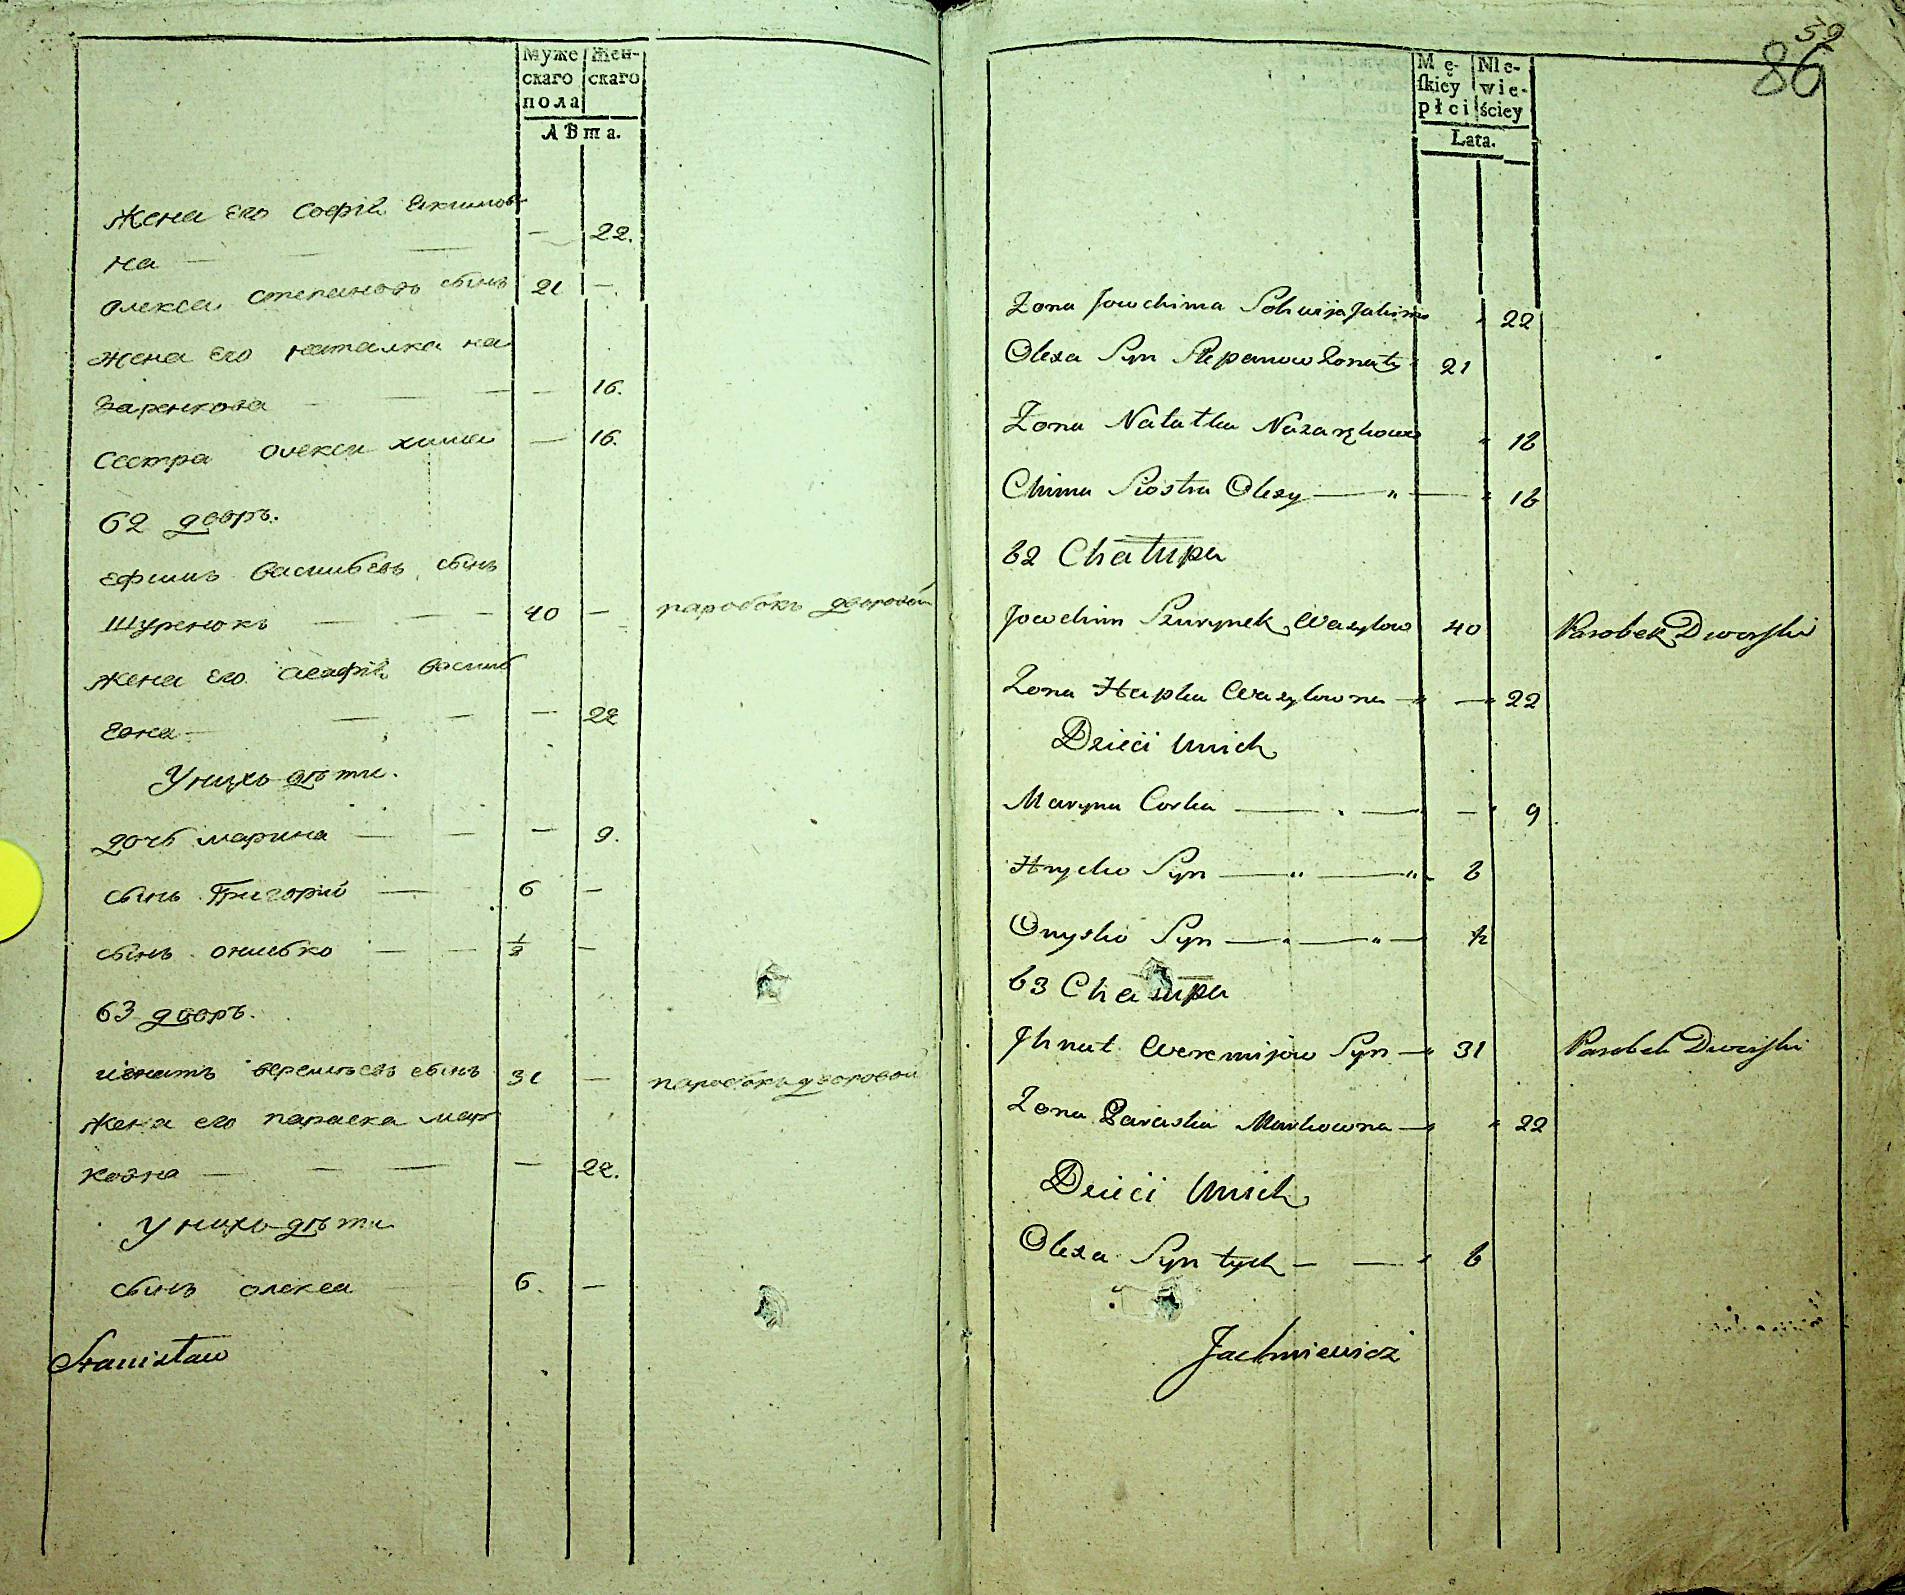 Муже
скаго
пола
Жен-
скаго
Лѣта.
Жена его Софія Якимов
на — 22.
Олекса Степановъ сынъ 21 —
Жена его наталка на
заренкова — — 16.
Сестра Олекси химка — 16.
62 дворъ.
Ефимъ Васильевъ сынъ
Шуренокъ — 40 — паробокъ дворовой
Жена его Агафія Василь
евна — — 22
У нихъ дѣти.
дочь марина — — 9.
сынъ Григорій — 6 —
сынъ онисько — 1/2 —
63 дворъ.
игнатъ веремѣевъ сынъ 31 — паробокъ дворовой
Жена его параска мар
ковна — — 22.
У нихъ дѣти
сынъ олекса 6. —
Stanisław
52
86
Mę-
skiey
płci
Nie-
wie-
ściey
Lata.
Zona Jowchima 22
Olexa Syn Stepanow Zonaty 21
Zona Natałka 16
Chima Siostra Olexy — 16
62 Chałupa
Jowchim Wasylow 40 Parobek Dworski
Zona Hapka Wasylowna — 22
Dzieci Unich
Maryna Corka — 9
Hrycko Syn — 6
Onysko Syn — 1/2
63 Chałupa
Jhnat Weremijow Syn — 31 Parobek Dworski
Zona Paraska Markowna — 22
Dzieci Unich
Olexa Syn tych — 6
Jachniewicz